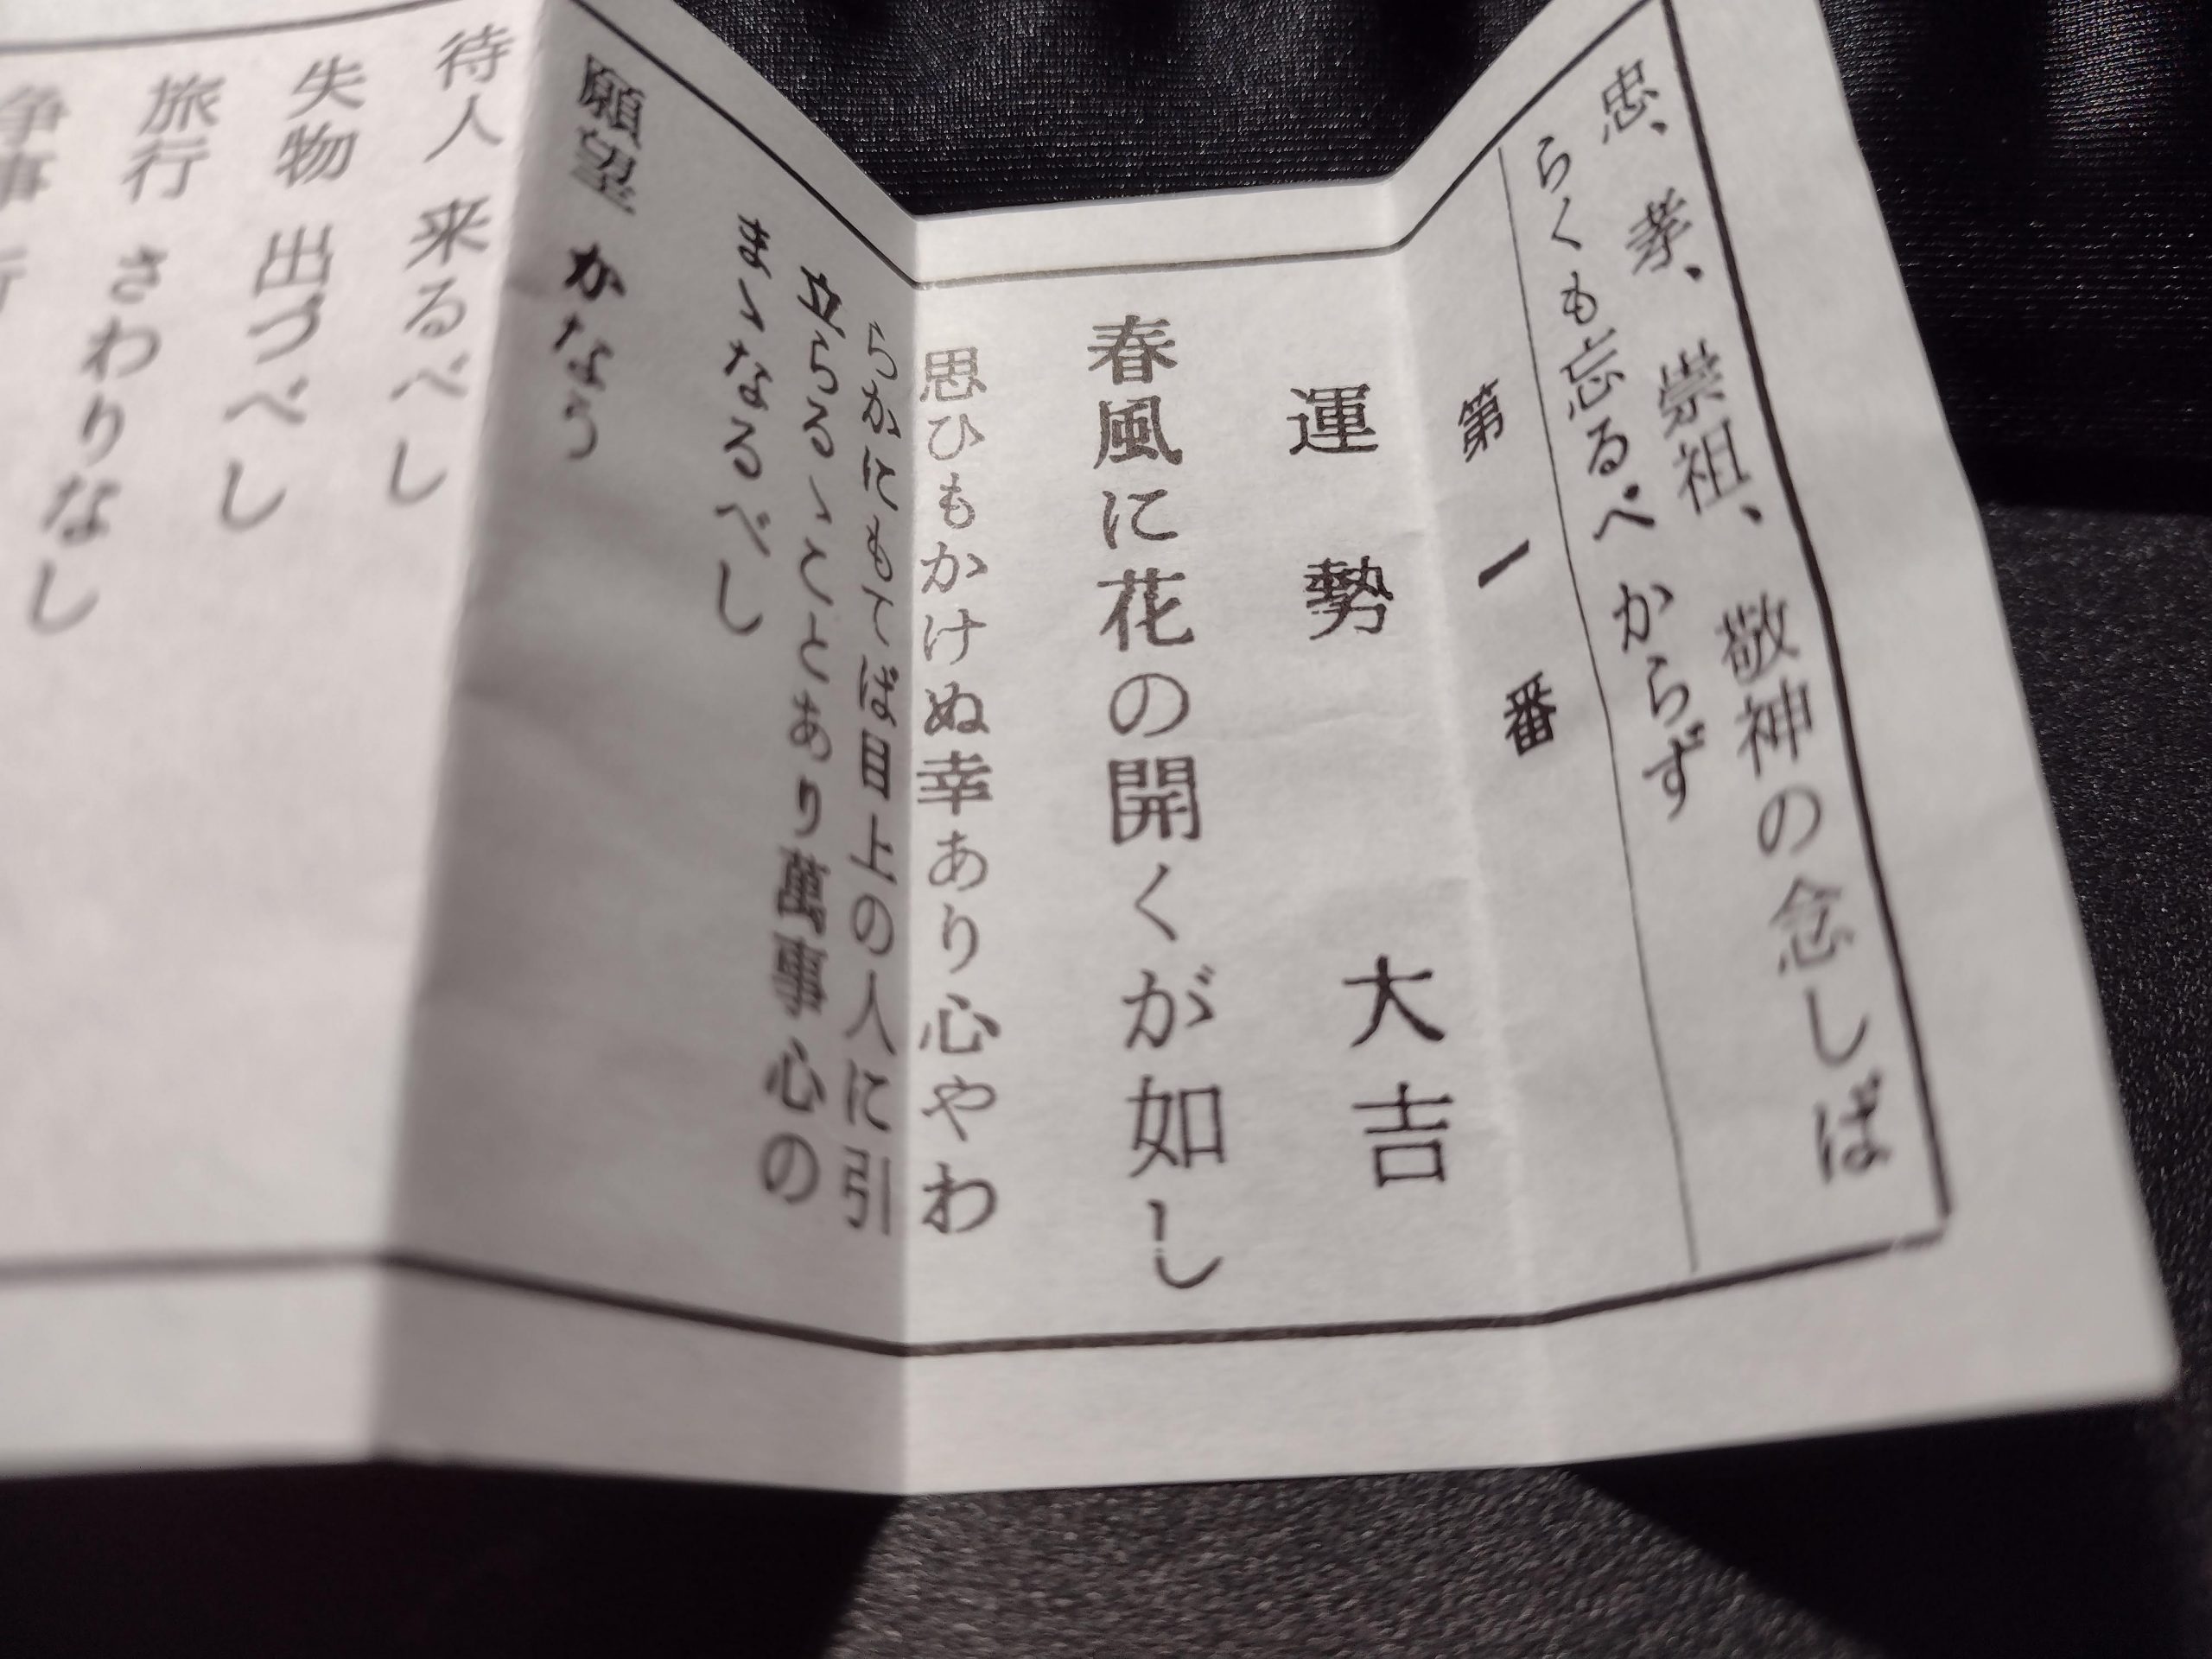 忠、孝、崇祖、敬神の念しば
らくも忘るべからず
第一番
運勢 大吉
春風に花の開くが如し
思ひもかけぬ幸あり心やわ
らかにもてば目上の人に引
立らるゝことあり萬事心の
まゝなるべし
願望 かなう
待人 来るべし
失物 出づべし
旅行 さわりなし
争事